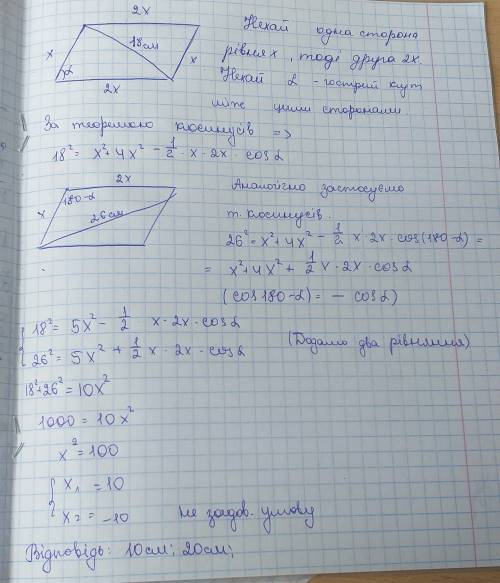 2x
x
18см
x
α
2x
Нехай одна сторона
рівна x, тоді друга 2x.
Нехай α - гострий кут
між цими сторонами.
За теоремою косинусів =>
18² = x² + 4x² - 1/2 · x · 2x · cosα
2x
x
180-α
26см
Аналогічно застосуємо
т. косинусів.
26² = x² + 4x² - 1/2 x · 2x · cos(180-α) =
= x² + 4x² + 1/2 x · 2x · cosα
(cos180-α) = - cosα)
{ 18² = 5x² - 1/2 x · 2x · cosα
26² = 5x² + 1/2 x · 2x · cosα
(Додамо два рівняння)
18² + 26² = 10x²
1000 = 10x²
x² = 100
{ x₁ = 10
x₂ = -10 не задов. умову
Відповідь: 10см; 20см;